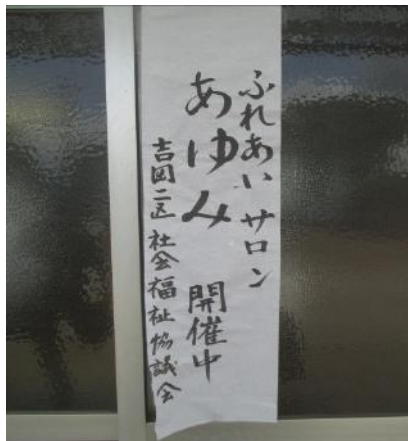 ふれあいサロン
あゆみ 開催中
吉岡二区 社会福祉協議会